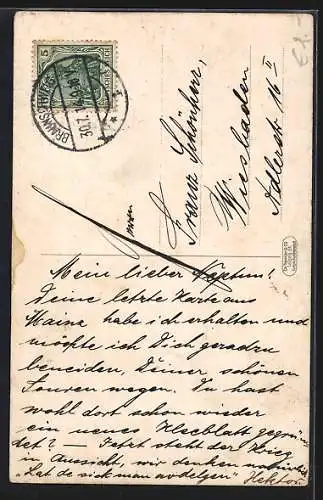 5
BRAUNSCHWEIG
30.7.
Herrn
Franz Schönherr,
Wiesbaden
Adlerstr 16 II
Mein lieber Neptun!
Deine letzte Karte aus
Mainz habe ich erhalten und
möchte ich Dich geradezu
beneiden, Deiner schönen
Touren wegen. Du hast
wohl dort schon wieder
ein neues Kleeblatt gegrün-
det? — Jetzt steht der Krieg
in Aussicht, wir denken
"Lat se sick man
Hektor